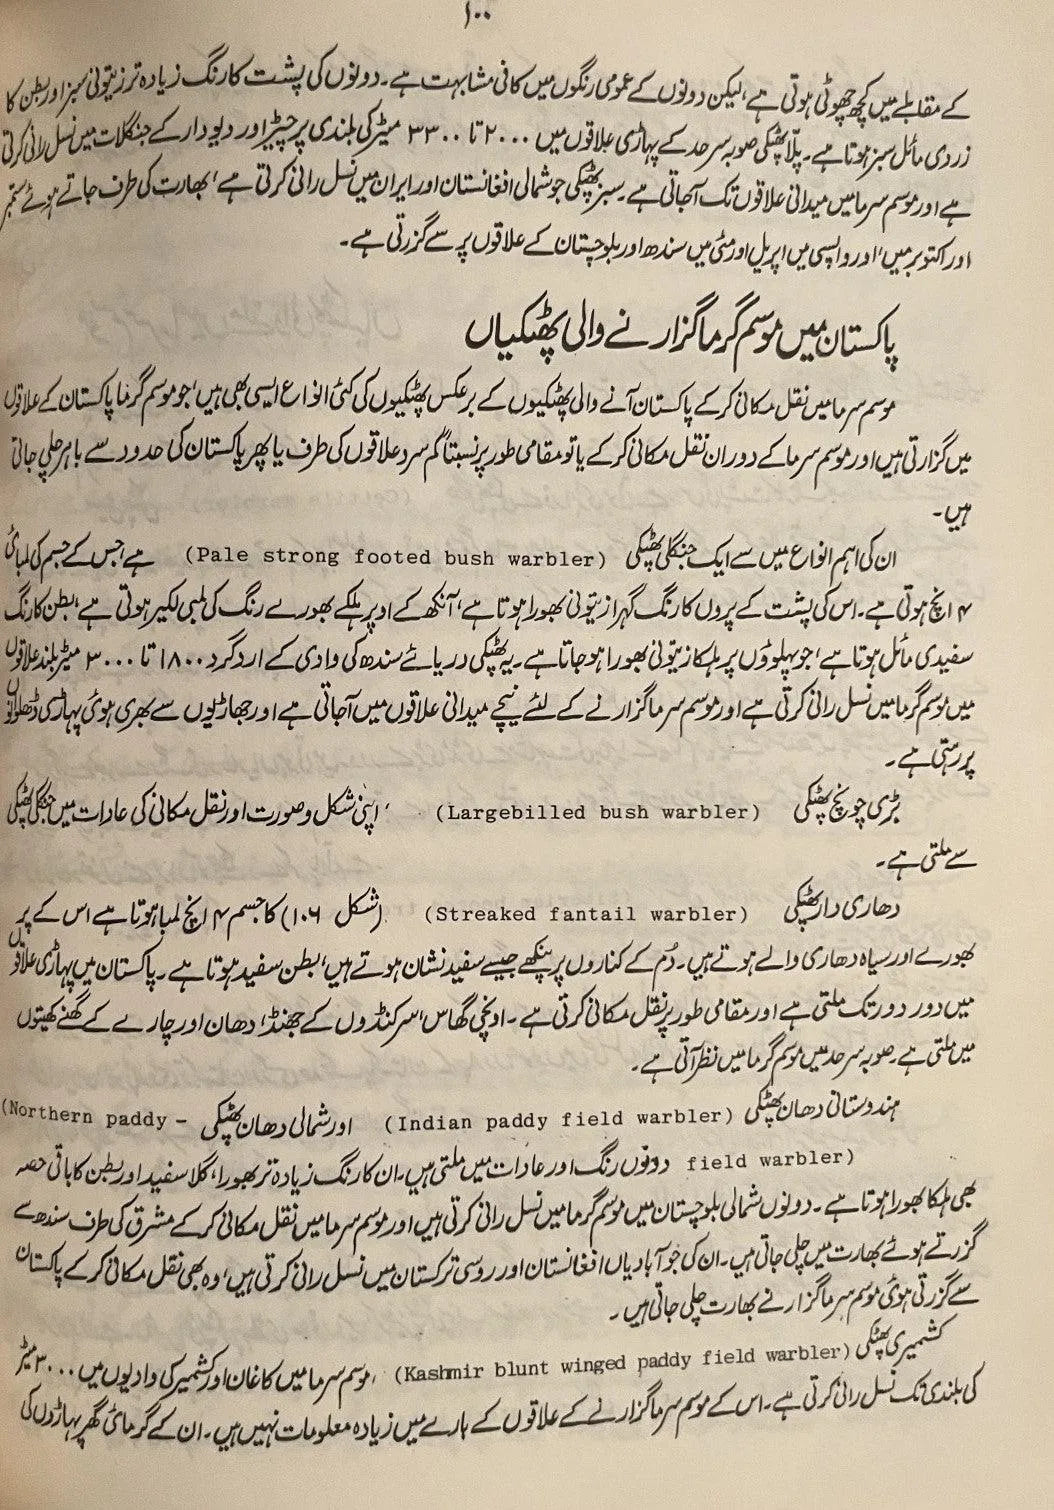 ۱۰۰
کے مقابلے میں کچھ چھوٹی ہوتی ہے، لیکن دونوں کے عمومی رنگوں میں کافی مشابہت ہے۔ دونوں کی پشت کا رنگ زیادہ تر زیتونی سبز اور بطن کا
زردی مائل سبز ہوتا ہے۔ پلّا پھٹکی صوبہ سرحد کے پہاڑی علاقوں میں ۲۰۰۰ تا ۳۳۰۰ میٹر کی بلندی پر چیڑ اور دیودار کے جنگلات میں نسل رانی کرتی
ہے اور موسم سرما میں میدانی علاقوں تک آجاتی ہے۔ سبز پھٹکی جو شمالی افغانستان اور ایران میں نسل رانی کرتی ہے، بھارت کی طرف جاتے ہوئے ستمبر
اور اکتوبر میں، اور واپسی میں اپریل اور مئی میں سندھ اور بلوچستان کے علاقوں پر سے گزرتی ہے۔
پاکستان میں موسم گرما گزارنے والی پھٹکیاں
موسم سرما میں نقل مکانی کر کے پاکستان آنے والی پھٹکیوں کے برعکس پھٹکیوں کی کئی انواع ایسی بھی ہیں، جو موسم گرما پاکستان کے علاقوں
میں گزارتی ہیں اور موسم سرما کے دوران نقل مکانی کر کے یا تو مقامی طور پر نسبتاً کم سرد علاقوں کی طرف یا پھر پاکستان کی حدود سے باہر چلی جاتی
ہیں۔
ان کی اہم انواع میں سے ایک جنگلی پھٹکی (Pale strong footed bush warbler) ہے، جس کے جسم کی لمبائی
۴ انچ ہوتی ہے۔ اس کی پشت کے پروں کا رنگ گہرا زیتونی بھورا ہوتا ہے، آنکھ کے اوپر ہلکے بھورے رنگ کی لمبی لکیر ہوتی ہے، بطن کا رنگ
سفیدی مائل ہوتا ہے، جو پہلوؤں پر ہلکا زیتونی بھورا ہو جاتا ہے۔ یہ پھٹکی دریائے سندھ کی وادی کے ارد گرد ۱۸۰۰ تا ۳۰۰۰ میٹر بلند علاقوں
میں موسم گرما میں نسل رانی کرتی ہے اور موسم سرما گزارنے کے لئے نیچے میدانی علاقوں میں آجاتی ہے اور جھاڑیوں سے بھری ہوئی پہاڑی ڈھلوانوں
پر رہتی ہے۔
بڑی چونچ پھٹکی (Largebilled bush warbler) ، اپنی شکل و صورت اور نقل مکانی کی عادات میں جنگلی پھٹکی
سے ملتی ہے۔
دھاری دار پھٹکی (Streaked fantail warbler) (شکل ۱۰۶) کا جسم ۴ انچ لمبا ہوتا ہے اس کے پر
بھورے اور سیاہ دھاری والے ہوتے ہیں۔ دُم کے کناروں پر پنکھے جیسے سفید نشان ہوتے ہیں، بطن سفید ہوتا ہے۔ پاکستان میں پہاڑی علاقوں
میں دور دور تک ملتی ہے اور مقامی طور پر نقل مکانی کرتی ہے۔ اونچی گھاس، سرکنڈوں کے جھنڈ، دھان اور چارے کے گھنے کھیتوں
میں ملتی ہے۔ صوبہ سرحد میں موسم گرما میں نظر آتی ہے۔
ہندوستانی دھان پھٹکی (Indian paddy field warbler) اور شمالی دھان پھٹکی (Northern paddy -
field warbler) دونوں رنگ اور عادات میں ملتی ہیں۔ ان کا رنگ زیادہ تر بھورا، گلا سفید اور بطن کا باقی حصہ
بھی ہلکا بھورا ہوتا ہے۔ دونوں شمالی بلوچستان میں موسم گرما میں نسل رانی کرتی ہیں اور موسم سرما میں نقل مکانی کر کے مشرق کی طرف سندھ سے
گزرتے ہوئے بھارت میں چلی جاتی ہیں۔ ان کی جو آبادیاں افغانستان اور روسی ترکستان میں نسل رانی کرتی ہیں، وہ بھی نقل مکانی کر کے پاکستان
سے گزرتی ہوئی موسم سرما گزارنے بھارت چلی جاتی ہیں۔
کشمیری پھٹکی (Kashmir blunt winged paddy field warbler) ، موسم سرما میں کاغان اور کشمیر کی وادیوں میں ۳۰۰۰ میٹر
کی بلندی تک نسل رانی کرتی ہے۔ اس کے موسم سرما گزارنے کے علاقوں کے بارے میں زیادہ معلومات نہیں ہیں۔ ان کے گرمائی گھر پہاڑوں کی